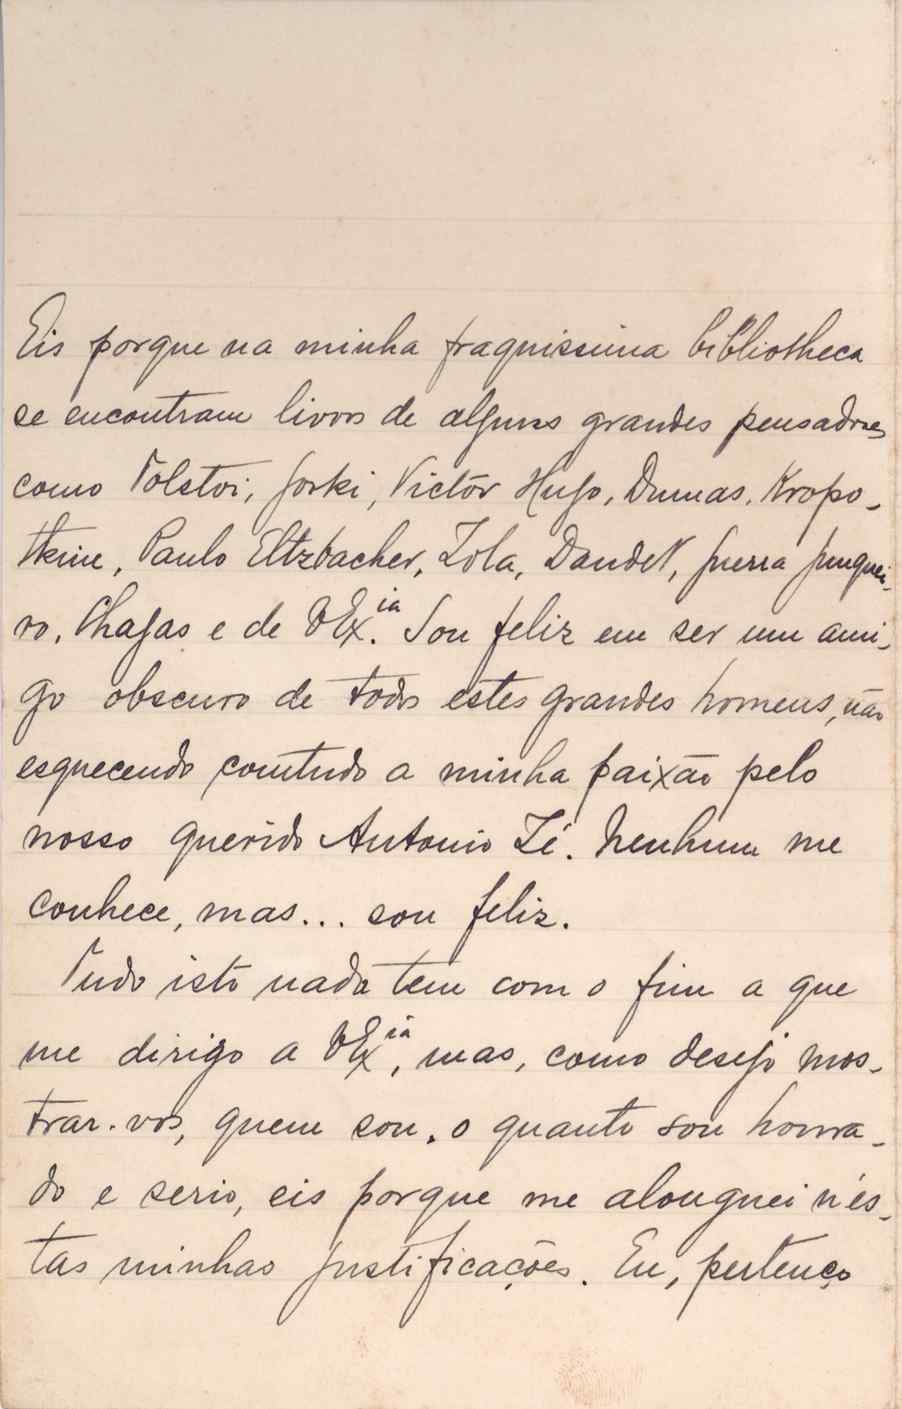 Eis porque na minha fraquissima bibliotheca
se encontram livros de alguns grandes pensadores
como Tolstoi, Gorki, Victôr Hugo, Dumas, Kropo-
tkine, Paulo Eltzbacher, Zola, Daudet, Guerra Junquei-
ro, Chagas e de V Ex.ia Sou feliz em ser um ami-
go obscuro de todos estes grandes homens, não
esquecendo comtudo a minha paixão pelo
nosso querido Antonio Zé. Nenhum me
conhece, mas... sou feliz.
Tudo isto nada tem com o fim a que
me dirigo a V Exia, mas, como desejo mos-
trar-vos, quem sou, o quanto sou honra-
do e serio, eis porque me alonguei n'es-
tas minhas justificações. Eu, pertenço